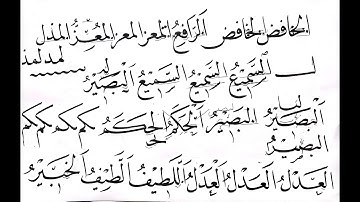 الخافض الخافض الرافع المعز المعز المعز المذل
لمد لمذ
لـ السميع السميع السميع البصير
البصير البصير الحكم الحكم كم كم كم كم
البصير
العدل العدل العدل اللطيف اللطيف الخبير